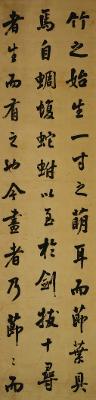 竹之始生一寸之萌耳而節葉具
焉自蜩蝮蛇蚹以至於劍拔十尋
者生而有之也今畫者乃節〻而